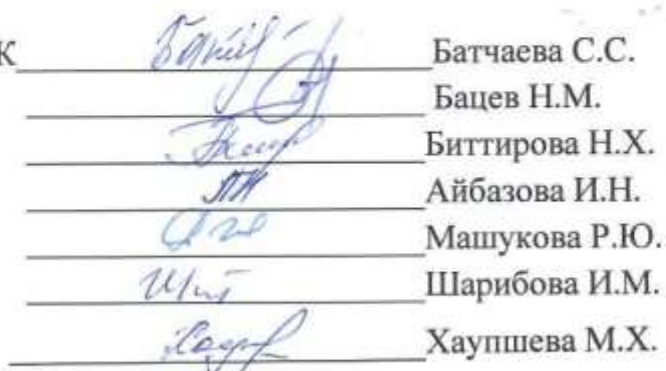 К Батчаева С.С.
Бацев Н.М.
Биттирова Н.Х.
Айбазова И.Н.
Машукова Р.Ю.
Шарибова И.М.
Хаупшева М.Х.